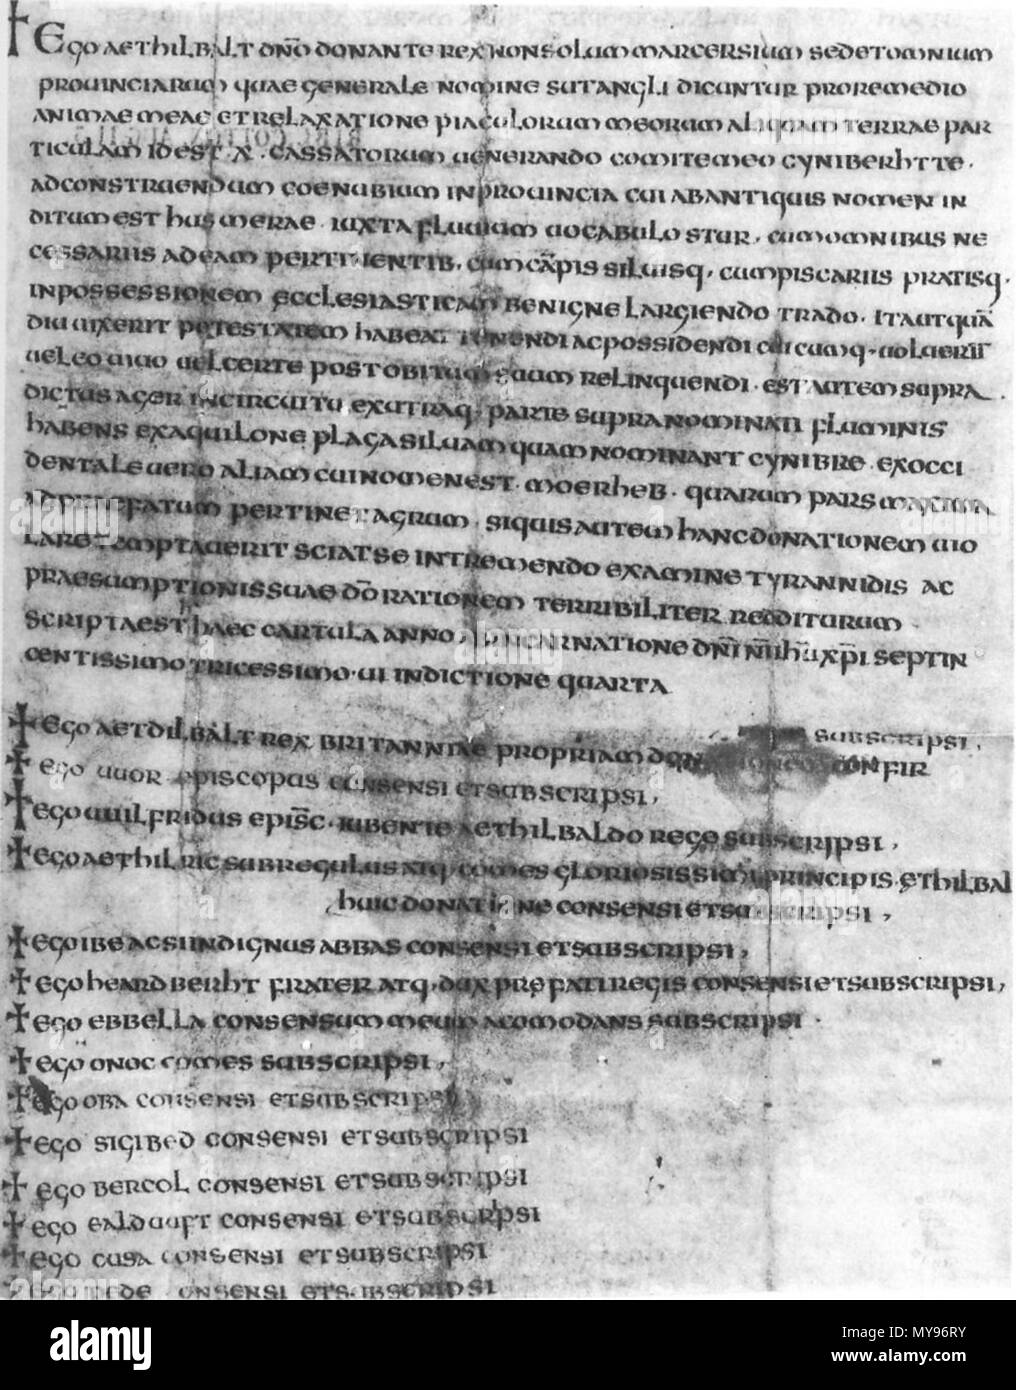 † Ego aethilbalt dn̄o donante rex non solum marcersium sed et omnium
prouinciarum quae generale nomine sutangli dicuntur pro remedio
animae meae et relaxatione piaculorum meorum aliquam terrae par
ticulam id est .x. cassatorum uenerando comite meo cyniberhtte .
ad construendum coenubium in prouincia cui ab antiquis nomen in
ditum est husmerae . iuxta fluuium uocabulo stur . cum omnibus ne
cessariis ad eam pertinentib. cum cāpis siluisq. cum piscariis pratisq.
in possessionem ecclesiasticam benigne largiendo trado . ita ut quā
diu uixerit potestatem habeat tenendi ac possidendi cuicumq. uoluerit
uel eo uiuo uel certe post obitum suum relinquendi . est autem supra
dictus ager in circuitu ex utraq. parte supranominati fluminis
habens ex aquilone plaga siluam quam nominant cynibre . ex occi
dentale uero aliam cui nomen est . moerheb . quarum pars maxima
ad praefatum pertinet agrum . si quis autem hanc donationem uio
lare temptauerit sciat se in tremendo examine tyrannidis ac
praesumptionis suae dō rationem terribiliter redditurum .
scripta est haec cartula anno ab incarnatione dn̄i n̄i ihū xp̄i septin
centissimo tricessimo . ui indictione quarta
† ego aetdilbalt rex britanniae propriam donationem confir
subscripsi .
† ego uuor episcopus consensi et subscripsi ,
† ego uuilfridus episc̄ . iubente aethilbaldo rege subscripsi ,
† ego aethilric subregulus atq. comes gloriosissimi principis ethilbal
huic donatione consensi et subscripsi ,
† ego ibe acsi indignus abbas consensi et subscripsi ,
† ego heardberht frater atq. dux praefati regis consensi et subscripsi ,
† ego ebbella consensum meum acomodans subscripsi .
† ego onoc comes subscripsi ,
† ego oba consensi et subscripsi
† ego sigibed consensi et subscripsi
† ego bercol consensi et subscripsi
† ego ealduuft consensi et subscripsi
† ego cusa consensi et subscripsi
† ego pede consensi et subscripsi
alamy
Image ID: MY96RY
www.alamy.com